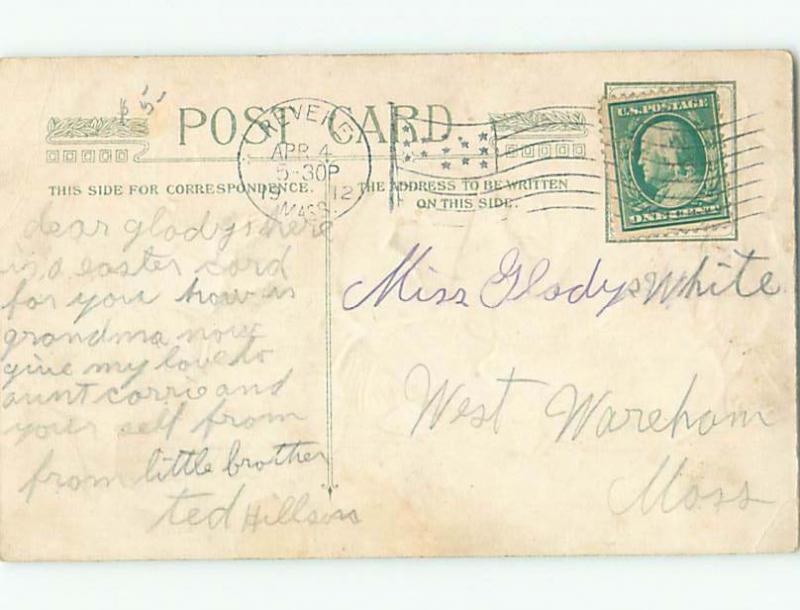 $ 5-
POST CARD
REVERE
APR 4
5-30P
19 12
MASS.
U.S. POSTAGE
ONE CENT
THIS SIDE FOR CORRESPONDENCE.
THE ADDRESS TO BE WRITTEN
ON THIS SIDE.
dear gladys here
is a easter card
for you how is
grandma now
give my love to
aunt carrie and
your self from
from little brother
ted
Miss Gladys White
West Wareham
Mass